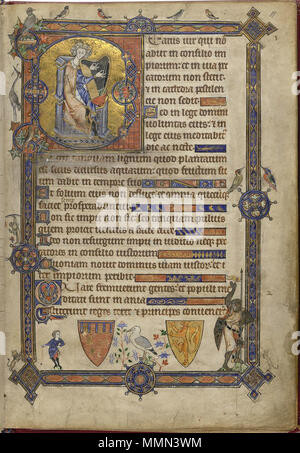 Beatus uir qui no
abiit in consilio im
piorum: et in uia pec
catorum non stetit:
et in cathedra pestilen
cie non sedit.
Sed in lege domini
uoluntas eius: et in
lege eius meditabitur
die ac nocte.
Et erit tanquam lignum quod plantatum
est secus decursus aquarum: quod fructum su
um dabit in tempore suo
Et folium eius non defluet: et omnia quecumque
faciet prosperabuntur
Non sic impii non sic: sed tanquam puluis
quem proicit uentus a facie terre
Ideo non resurgunt impii in iudicio: neque pec
catores in consilio iustorum
Quoniam nouit dominus uiam iustorum: et iter
impiorum peribit
Quare fremuerunt gentes: et populi me
ditati sunt inania
Astiterunt reges terre et principes conuenerunt
MMN3WM